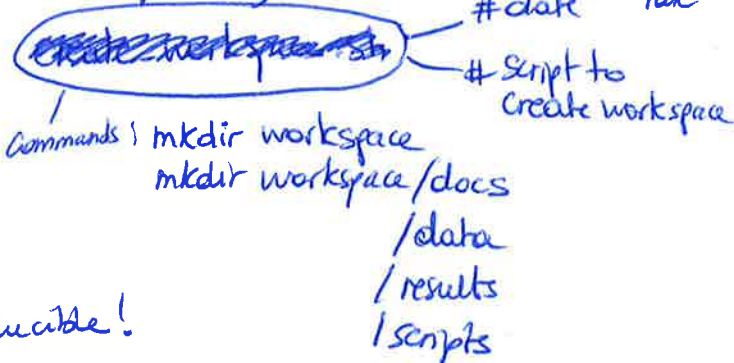 #date
#script to
create workspace
Commands: mkdir workspace
mkdir workspace/docs
/data
/results
/scripts
ucible!